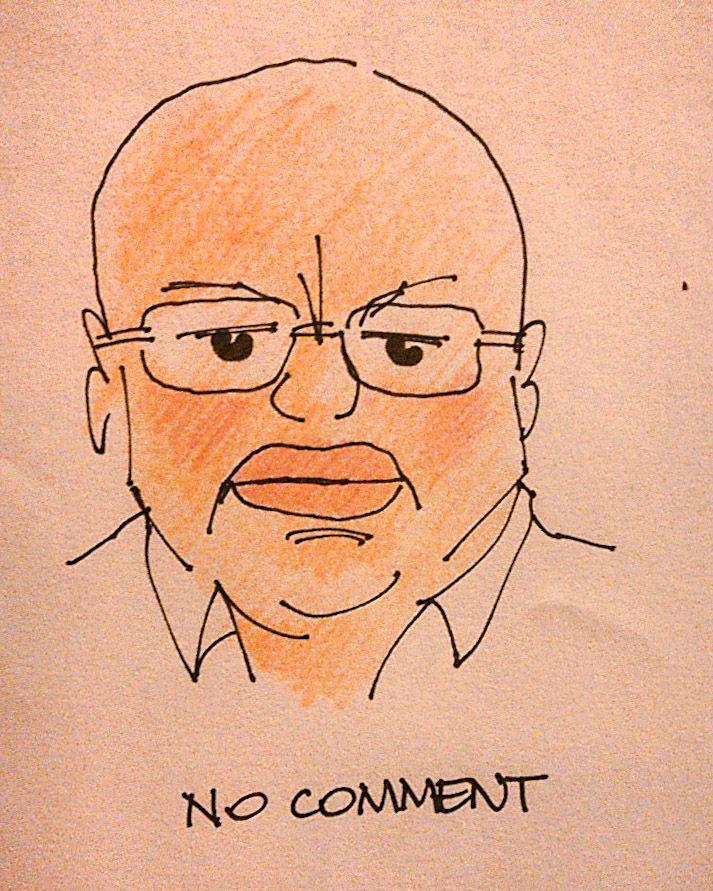 NO COMMENT